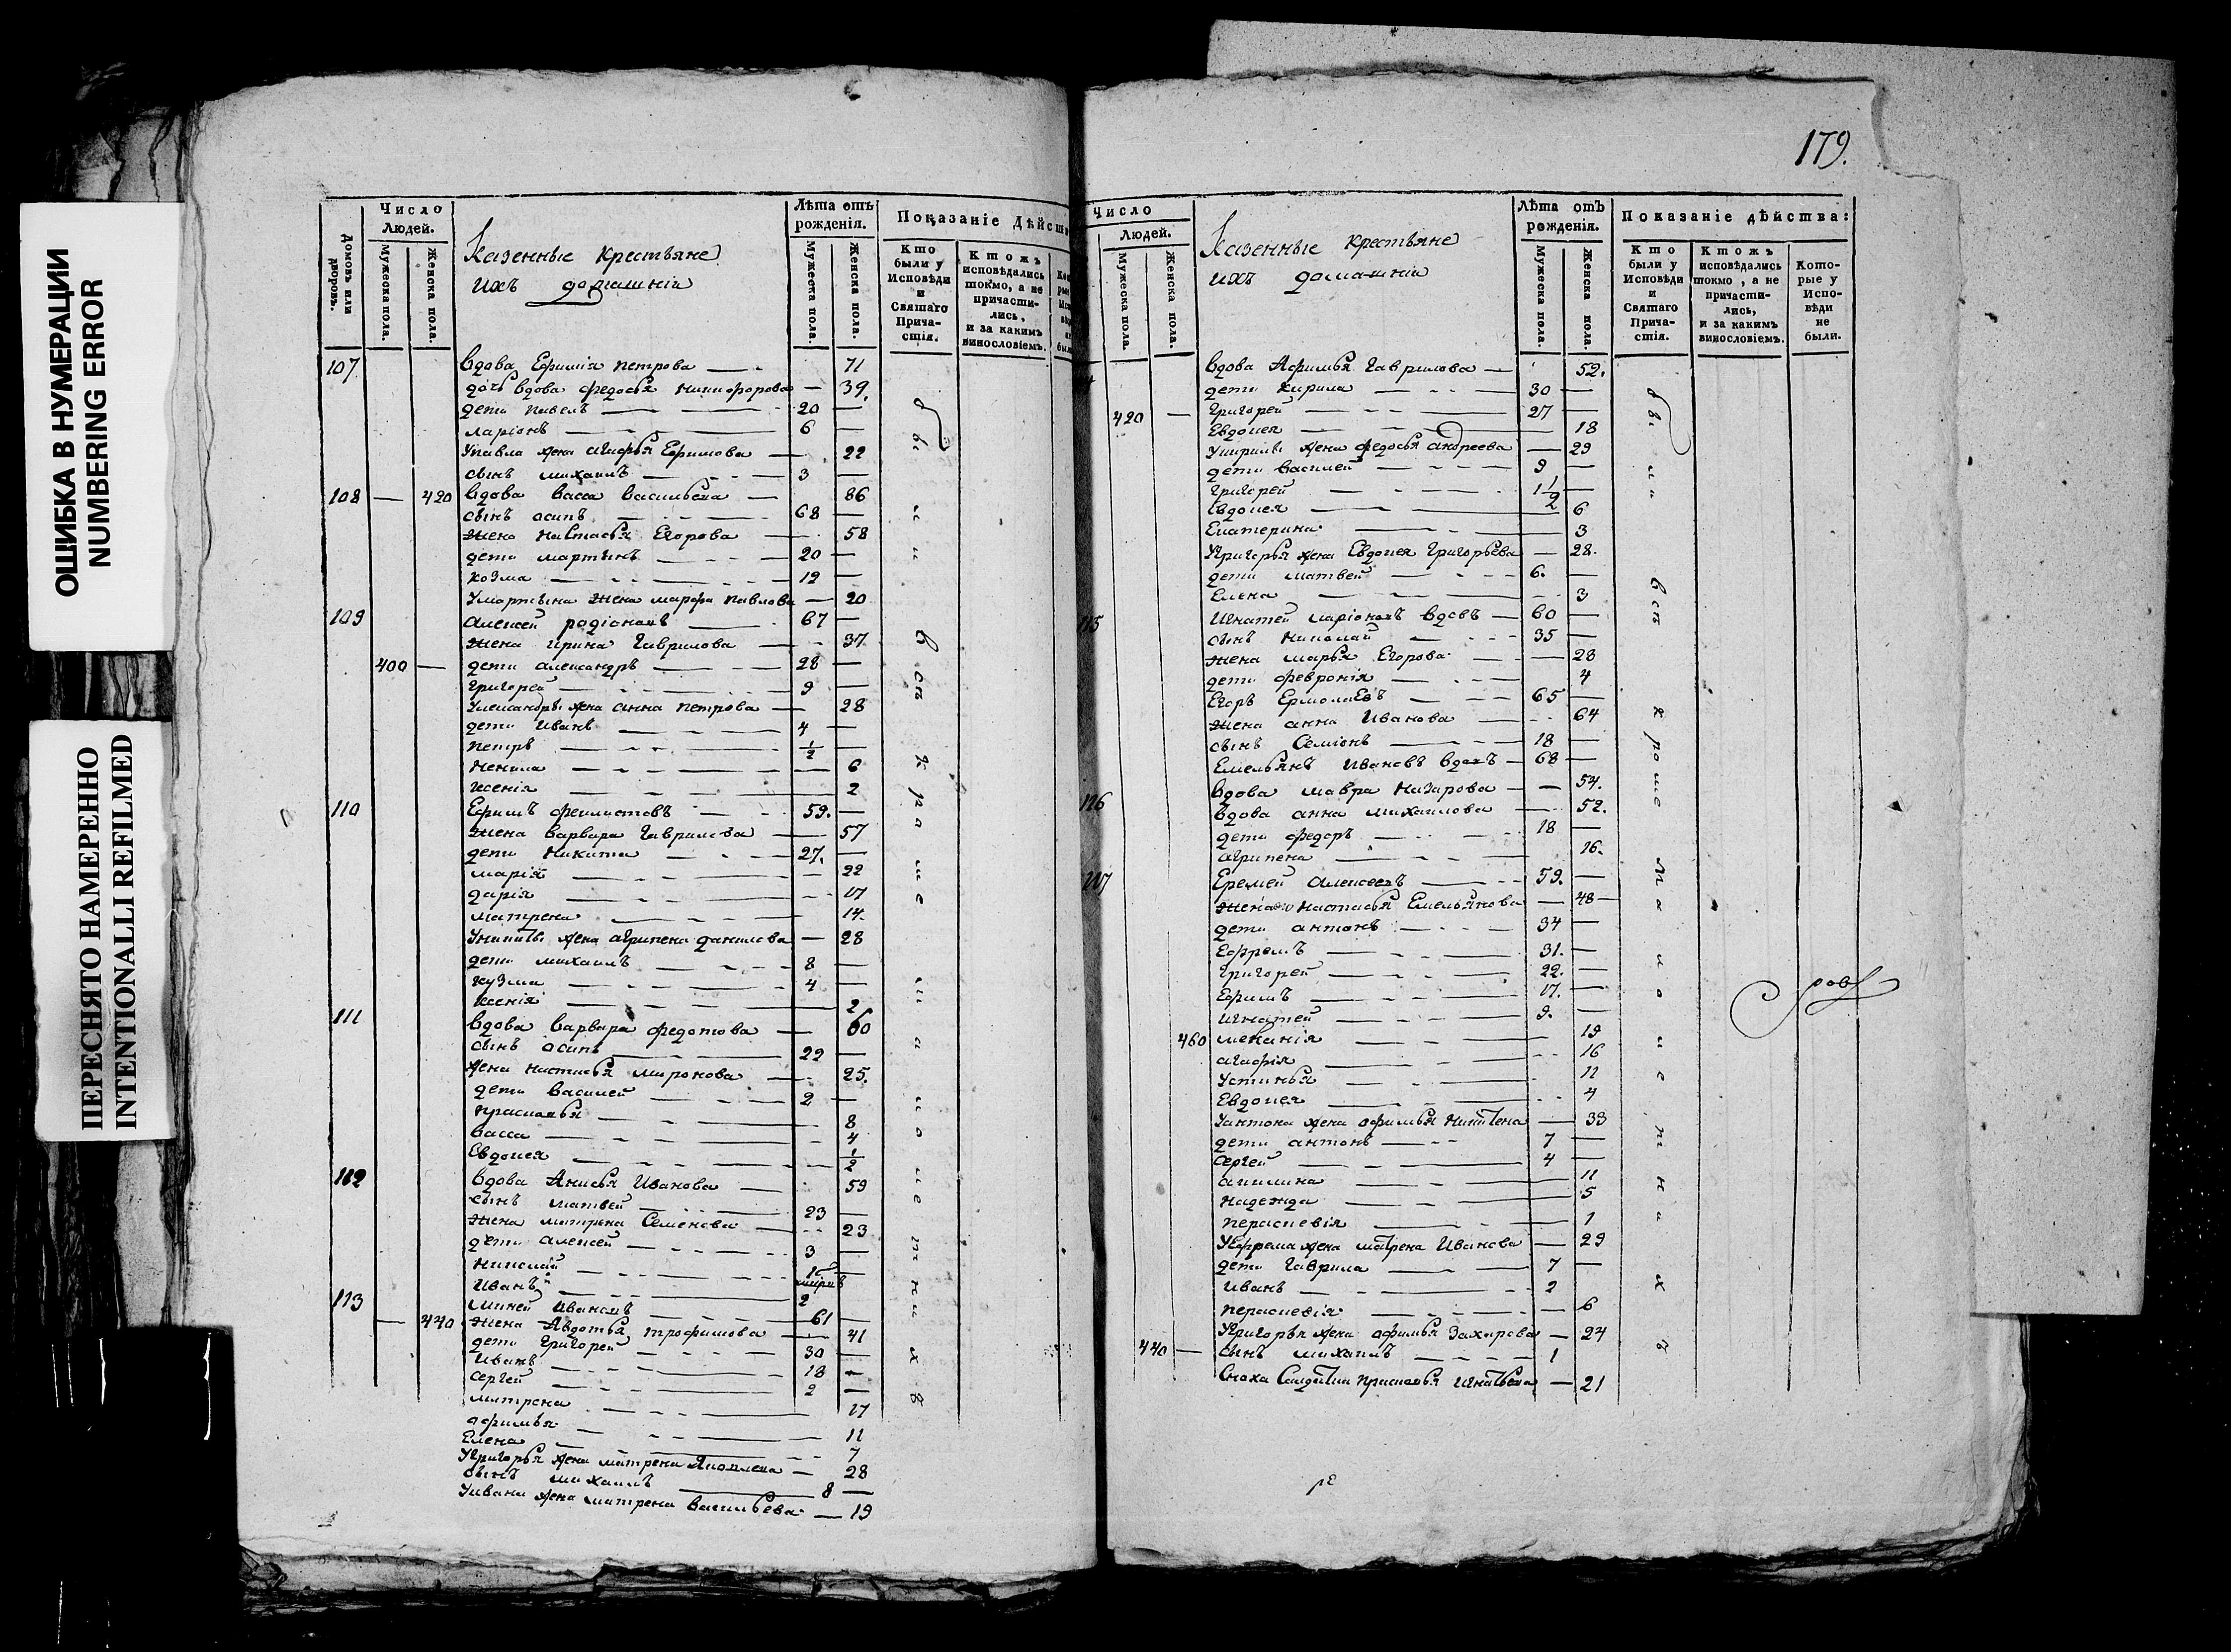 ОШИБКА В НУМЕРАЦИИ
NUMBERING ERROR
ПЕРЕСНЯТО НАМЕРЕННО
INTENTIONALLI REFILMED
Домовъ или дворовъ.
Число Людей.
Мужеска пола.
Женска пола.
Казенные крестьяне
ихъ домашнія
Лѣта отъ рожденія.
Мужеска пола.
Женска пола.
Показаніе Дѣйств
Кто были у Исповѣди и Святаго Прича- стія.
Ктожъ исповѣдались токмо, а не причасти- лись, и за какимъ винословіемъ.
107 вдова Ефимія петрова 71
дочь вдова федосья никифорова 39.
дети павелъ 20
ларіонъ 6
Упавла жена агафья Ефимова 22
сынъ михаилъ 3
108 — 420 вдова васса васильева 86
сынъ осипъ 68
жена настасья Егорова 58
дети мартынъ 20
козма 12
Умартына жена марфа павлова 20
109 алексей родіоновъ 67
жена ирина гаврилова 37
400 — дети александръ 28
григорей 9
Уалександры жена анна петрова 28
дети иванъ 4
петръ 1/2
ненила 6
ксенія 2
110 Ефимъ феклистовъ 59.
жена варвара гаврилова 57
дети никита 27.
марія 22
дарія 17
матрена 14.
Уникиты жена агрипена данилова 28
дети михаилъ 8
кузма 4
ксенія 2
111 вдова варвара федотова 60
сынъ осипъ 22
жена настасья миронова 25.
дети василей 2
прасковья 8
васса 4
Евдокея 1/2
112 вдова Анисья Иванова 59
сынъ матвей 23
жена матрена Семенова 23
дети алексей 3
николай
Иванъ 2
113 миней Ивановъ 61
— 440 жена Авдотья трофимова 41
дети Григорей 30
Иванъ 18
сергей 2
матрена 17
афимья 11
Елена 7
Угригорья жена матрена Яковлева 28
сынъ михаилъ 8
Уивана жена матрена васильева 19
были всѣ кроме малолетнихъ
179.
Число Людей.
Мужеска пола.
Женска пола.
Казенные крестьяне
ихъ домашнія
Лѣта отъ рожденія.
Мужеска пола.
Женска пола.
Показаніе дѣйства:
Кто были у Исповѣди и Святаго Прича- стія.
Ктожъ исповѣдались токмо, а не причасти- лись, и за какимъ винословіемъ.
Кото- рые у Испо- вѣди не были.
вдова Афимья Гаврилова 52.
дети кирила 30
420 — григорей 27
Евдокея 18
Укирилы жена федосья андреева 29
дети василей 9
григорей 1 1/2
Евдокея 6
Екатерина 3
Угригорья жена Евдокея григорьева 28.
дети матвей 6.
Елена 3
115 Игнатей ларіоновъ вдовъ 60
сынъ николай 35
жена марья Егорова 28
дети февронія 4
Егоръ Ермолаевъ 65
жена анна Иванова 64
сынъ Семіонъ 18
Емельянъ Ивановъ вдовъ 68
вдова мавра назарова 54.
116 вдова анна михаилова 52.
дети федоръ 18
агрипена 16.
117 Еремей алексеевъ 59.
жена настасья Емельянова 48
дети антонъ 34
Ефремъ 31.
григорей 22.
Ефимъ 17.
Игнатей 9.
460 меланія 19
агафія 16
Устинья 11
Евдокея 4
Уантона жена афимья никитена 33
дети антонъ 7
сергей 4
акилина 11
надежда 5
пераскевія 1
Уефрема жена матрена Иванова 29
дети гаврила 7
Иванъ 2
пераскевія 6
Угригорья жена афимья захарова 24
440 — сынъ михаилъ 1
Сноха Солдатка прасковья Игнатьева 21
были всѣ кроме малолетнихъ